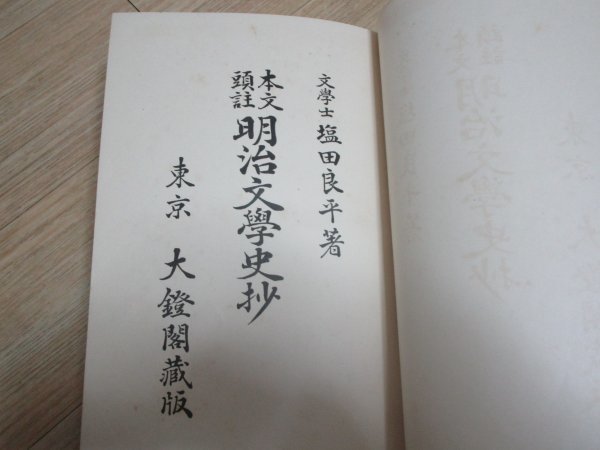 文學士 塩田良平著
本文頭註 明治文學史抄
東京 大鐙閣藏版